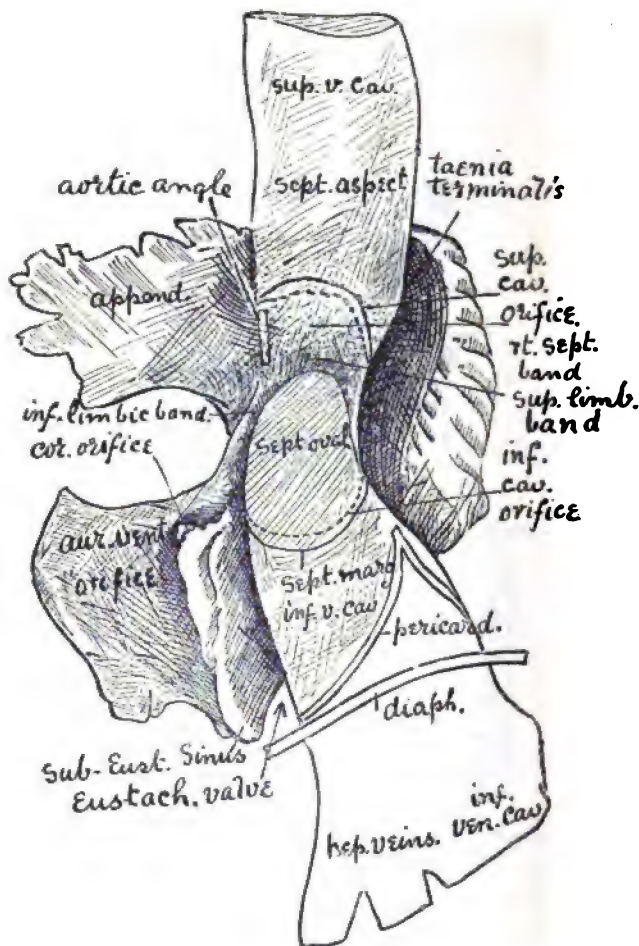 sup. v. cav.
aortic angle
sept. aspect
taenia
terminalis
append.
sup.
cav.
orifice.
rt. sept.
band
sup. limb.
band
inf. limbic band.
cor. orifice
Sept oval
inf.
cav.
orifice
aur. vent
orifice
Sept. marg
inf. v. cav
pericard.
diaph.
Sub-Eust. Sinus
Eustach. valve
hep. veins.
inf.
ven. cav